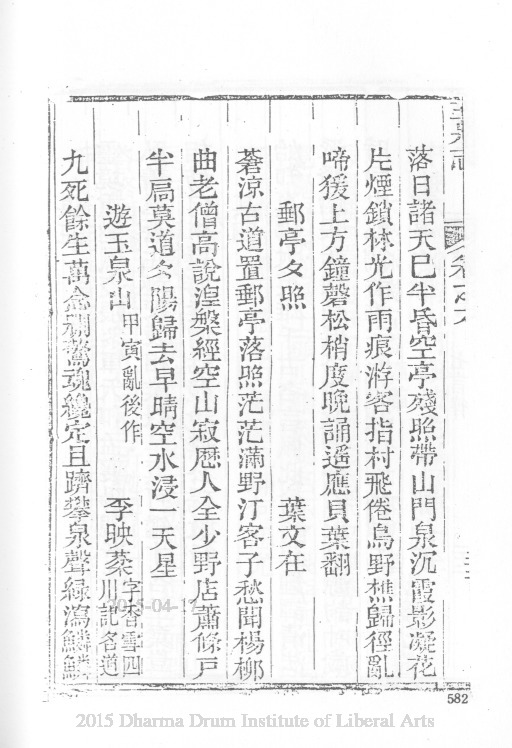 玉泉志
卷之六
落日諸天巳半昏空亭殘照帶山門泉沉霞影凝花
片煙鎖林光作雨痕游客指村飛倦鳥野樵歸徑亂
啼猨上方鐘磬松梢度晚誦遙應貝葉翻
郵亭夕照 葉文在
蒼涼古道置郵亭落照茫茫滿野汀客子愁聞楊柳
曲老僧高說湼槃經空山寂歷人全少野店蕭條戸
半扃莫道夕陽歸去早晴空水浸一天星
遊玉泉山 甲寅亂後作 李映棻 字香雪四川記名道
九死餘生萬念凋驚魂纔定且躋攀泉聲綠瀉鱗鱗
582
2015 Dharma Drum Institute of Liberal Arts